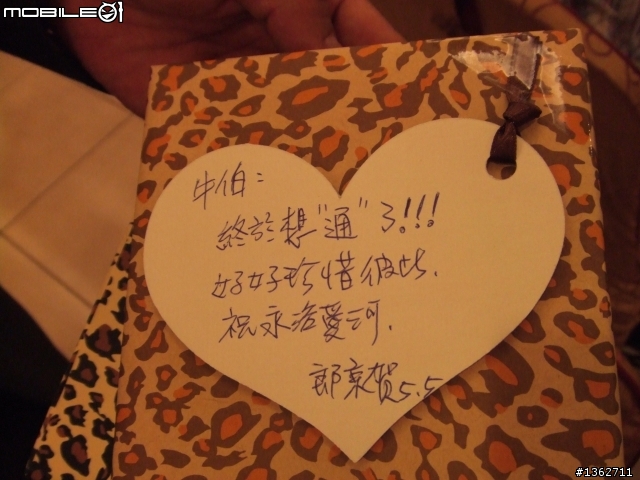 MOBILE01
牛伯：
終於想"通"了!!!
好好珍惜彼此.
祝永浴愛河.
賀5.5
#1362711